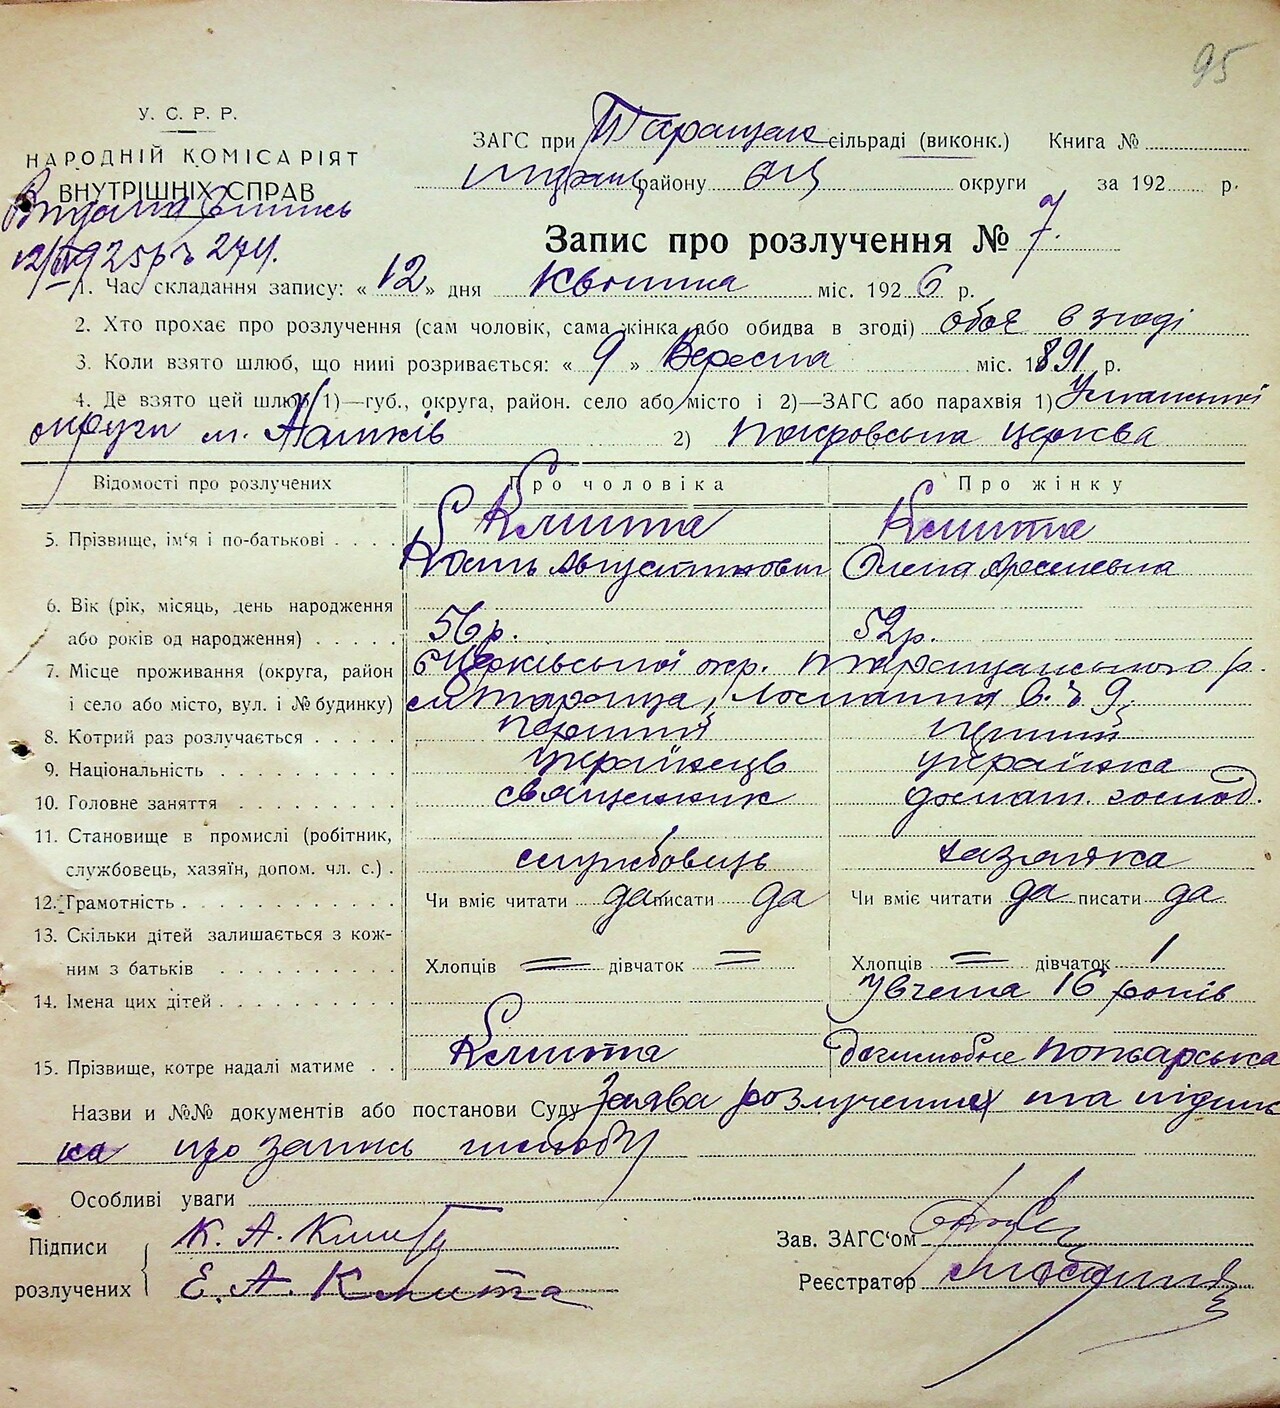 95
У. С. Р. Р.
НАРОДНІЙ КОМІСАРІЯТ
ВНУТРІШНІХ СПРАВ
12/IV 925р № 274.
ЗАГС при Таращан сільраді (виконк.) Книга №
району округи за 192 р.
Запис про розлучення № 7.
1. Час складання запису: « 12 » дня Квітня міс. 192 6 р.
2. Хто прохає про розлучення (сам чоловік, сама жінка або обидва в згоді) обоє в згоді
3. Коли взято шлюб, що нині розривається: « 9 » Вересня міс. 1891 р.
4. Де взято цей шлюб 1)—губ., округа, район. село або місто і 2)—ЗАГС або парахвія 1) Уманської
округи м. 2) Покровська церква
Відомості про розлучених Про чоловіка Про жінку
5. Прізвище, ім'я і по-батькові Кмита Кмита
Кость Августинович Олена Арсеневна
6. Вік (рік, місяць, день народження
або років од народження) 56р. 52р.
7. Місце проживання (округа, район Б Церківської окр. Таращанського р.
і село або місто, вул. і № будинку) м Тараща,
8. Котрий раз розлучається перший перший
9. Національність українець українка
10. Головне заняття священник домат. господ.
11. Становище в промислі (робітник,
службовець, хазяїн, допом. чл. с.) службовець хазяйка
12. Грамотність Чи вміє читати да писати да Чи вміє читати да писати да
13. Скільки дітей залишається з кож-
ним з батьків Хлопців = дівчаток = Хлопців = дівчаток 1
14. Імена цих дітей 16 років
15. Прізвище, котре надалі матиме Кмита дошлюбне
Назви и №№ документів або постанови Суду Заява розлучених та підпис
ка про запис шлюбу
Особливі уваги
Підписи К. А. Кмита Зав. ЗАГС'ом
розлучених Е. А. Кмита Реєстратор